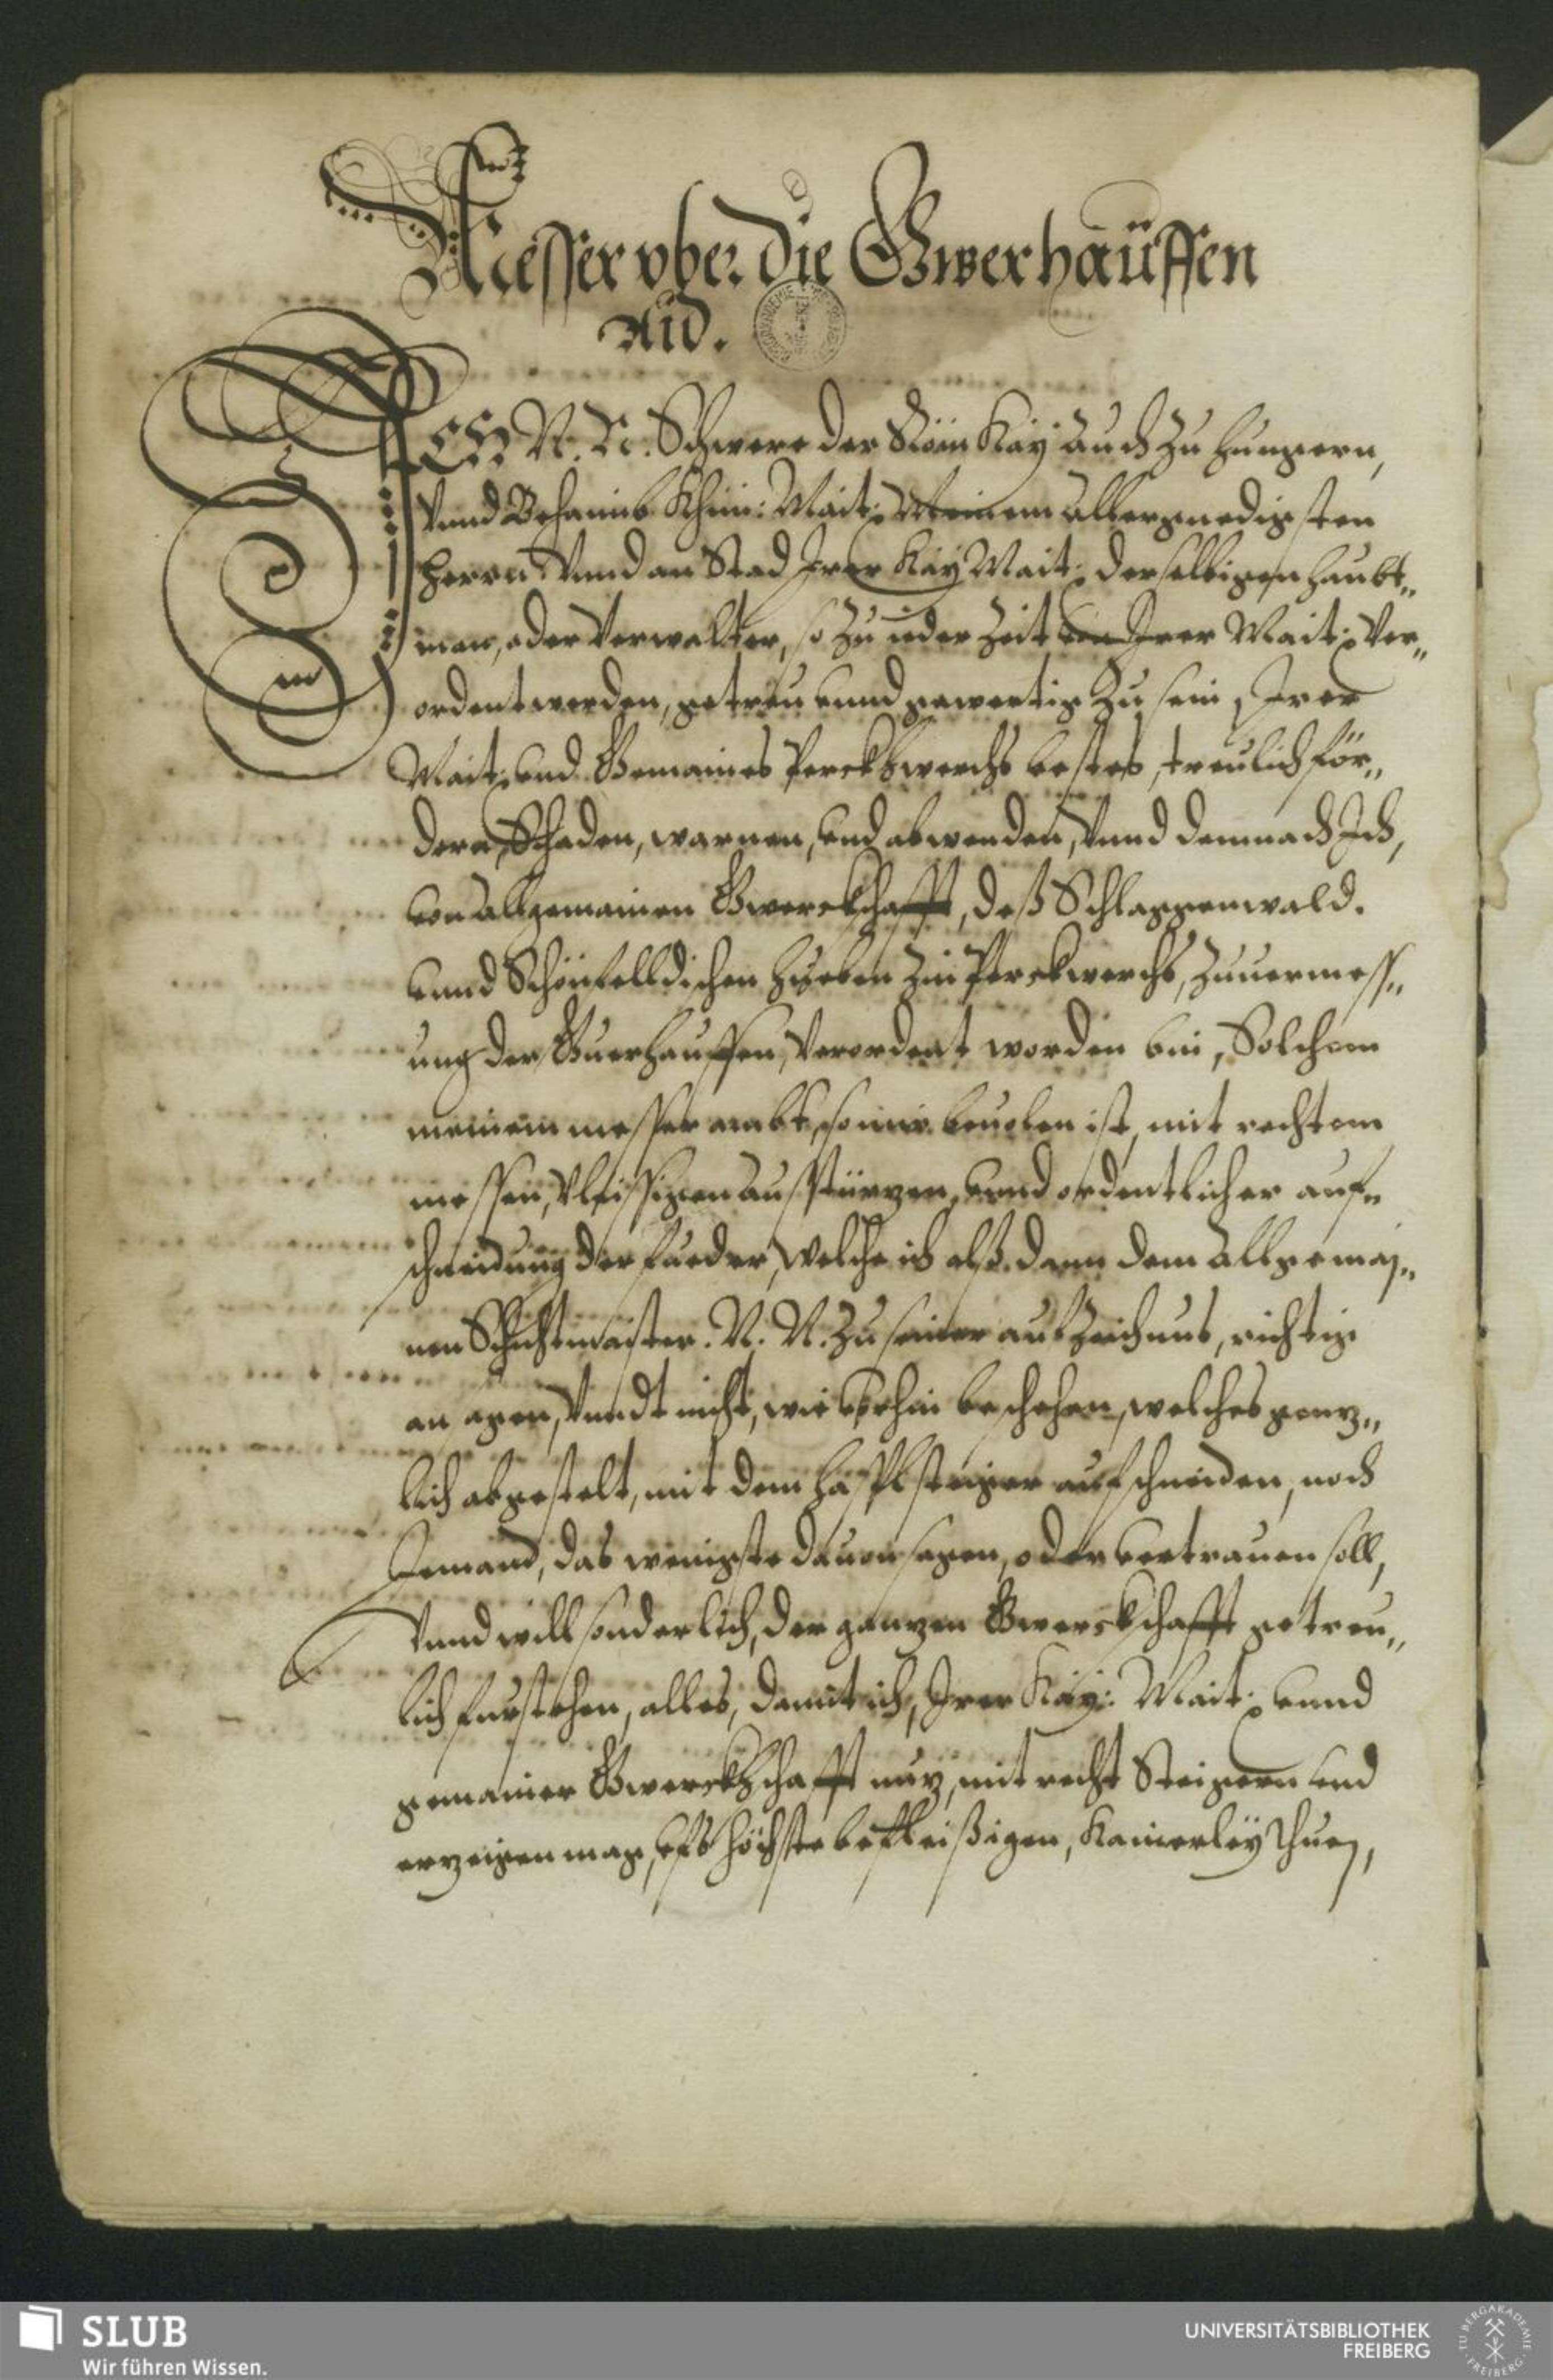 Messer vber die Gwerhauffen
Aid.
ICH N. N. Schwere der Röm Kay auch zu Hungern,
Vnnd Behaimb Khün: Mait: Meinem allergnedigsten
Herrn Vnnd an Stad Irer Kay Mait: derselbigen Haubt„
man, oder Verwalter, so zu ieder Zeit von Irer Mait: Ver„
ordent werden, getreu vnnd gewertig zu sein, Irer
Mait: vnd Gemaines Perckwerchs bestes, treulich för„
dern, Schaden, warnen, vnd abwenden, Vnnd demnach Ich,
von allgemainen Gwerckschafft, deß Schlaggenwald.
vnnd Schönfelldischen Zin Perckwerchs, zuuermess„
ung der Gwerhauffen, Verordent worden bin, Solchem
meinem messer ambt, so mir beuolen ist, mit rechtem
messen, Vleissigen ausstürzen, vnnd ordentlicher auf„
schneidung der fueder, Welche ich alß dann dem allgemai„
nen Schichtmaister. N. N. zu seiner aufzeichnus, richtig
an agen, Vnndt nicht, wie vorhin beschehen, welches genz„
lich abgestelt, mit dem Hasplsteiger aufschneiden, noch
Jemand, das wenigste dauon sagen, oder vertrauen soll,
Vnnd will sonderlich, der ganzen Gwerckschafft getreu„
lich furstehen, alles, damit ich, Irer Kay: Mait: vnnd
gemainer Gwerckschafft nuz, mit recht Steigern vnd
erzeigen mag, höchste befleißigen, Kainerley Thuen,
SLUB
Wir führen Wissen.
UNIVERSITÄTSBIBLIOTHEK
FREIBERG